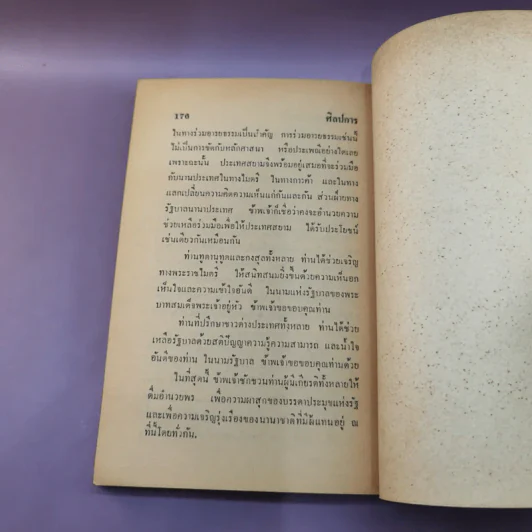 176 ศิลปการ
ในทางร่วมอารยธรรมเป็นสำคัญ การร่วมอารยธรรมเช่นนี้
ไม่เป็นการขัดกับหลักศาสนา หรือประเพณีอย่างใดเลย
เพราะฉะนั้น ประเทศสยามจึงพร้อมอยู่เสมอที่จะร่วมมือ
กับนานประเทศในทางไมตรี ในทางการค้า และในทาง
แลกเปลี่ยนความคิดความเห็นแก่กันและกัน ส่วนฝ่ายทาง
รัฐบาลนานาประเทศ ข้าพเจ้าก็เชื่อว่าคงจะอำนวยความ
ช่วยเหลือร่วมมือเพื่อให้ประเทศสยาม ได้รับประโยชน์
เช่นเดียวกันเหมือนกัน
ท่านทูตานุทูตและกงสุลทั้งหลาย ท่านได้ช่วยเจริญ
ทางพระราชไมตรี ให้สนิทสนมยิ่งขึ้นด้วยความเห็นอก
เห็นใจและความเข้าใจอันดี ในนามแห่งรัฐบาลของพระ
บาทสมเด็จพระเจ้าอยู่หัว ข้าพเจ้าขอขอบคุณท่าน
ท่านที่ปรึกษาชาวต่างประเทศทั้งหลาย ท่านได้ช่วย
เหลือรัฐบาลด้วยสติปัญญาความรู้ความสามารถ และน้ำใจ
อันดีของท่าน ในนามรัฐบาล ข้าพเจ้าขอขอบคุณท่านด้วย
ในที่สุดนี้ ข้าพเจ้าชักชวนท่านผู้มีเกียรติทั้งหลายให้
ดื่มอำนวยพร เพื่อความผาสุกของบรรดาประมุขแห่งรัฐ
และเพื่อความเจริญรุ่งเรืองของนานาชาติที่มีผู้แทนอยู่ ณ
ที่นี้โดยทั่วกัน.